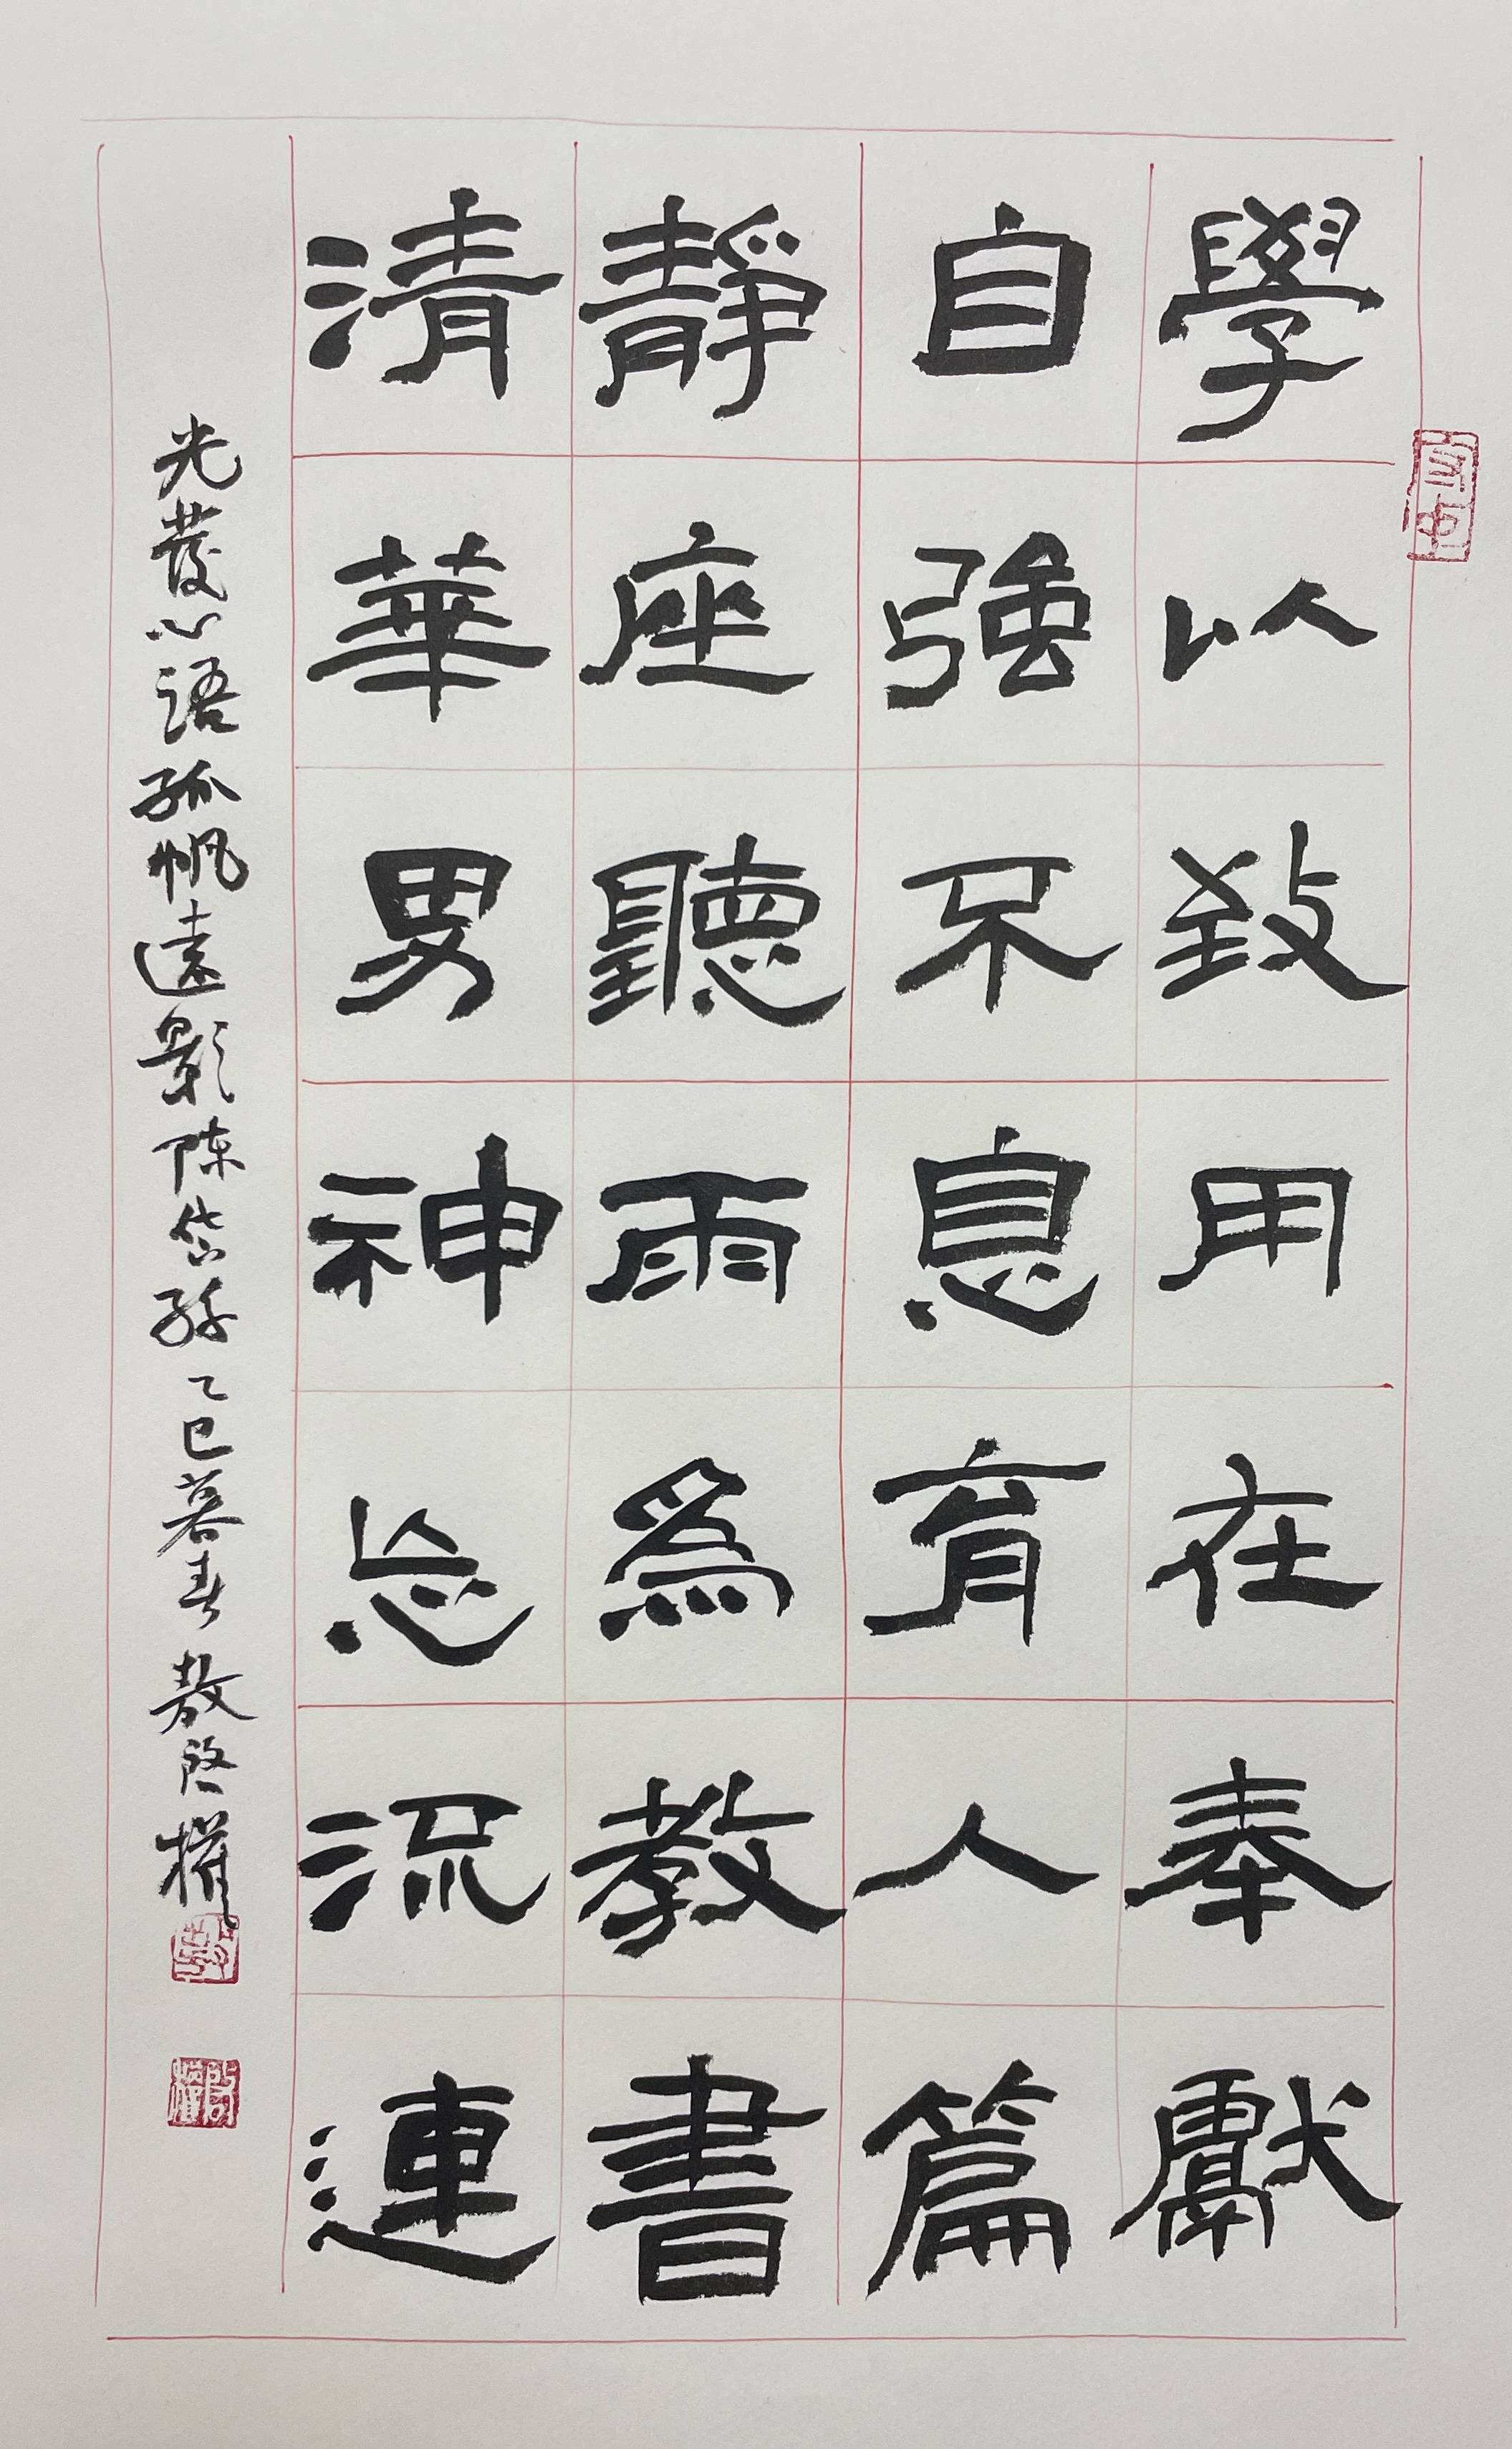 學以致用在奉獻
自強不息育人篇
靜座聽雨為教書
清華男神忘流連
光華心語孤帆遠影陈岱孙乙巳暮春敖啓權